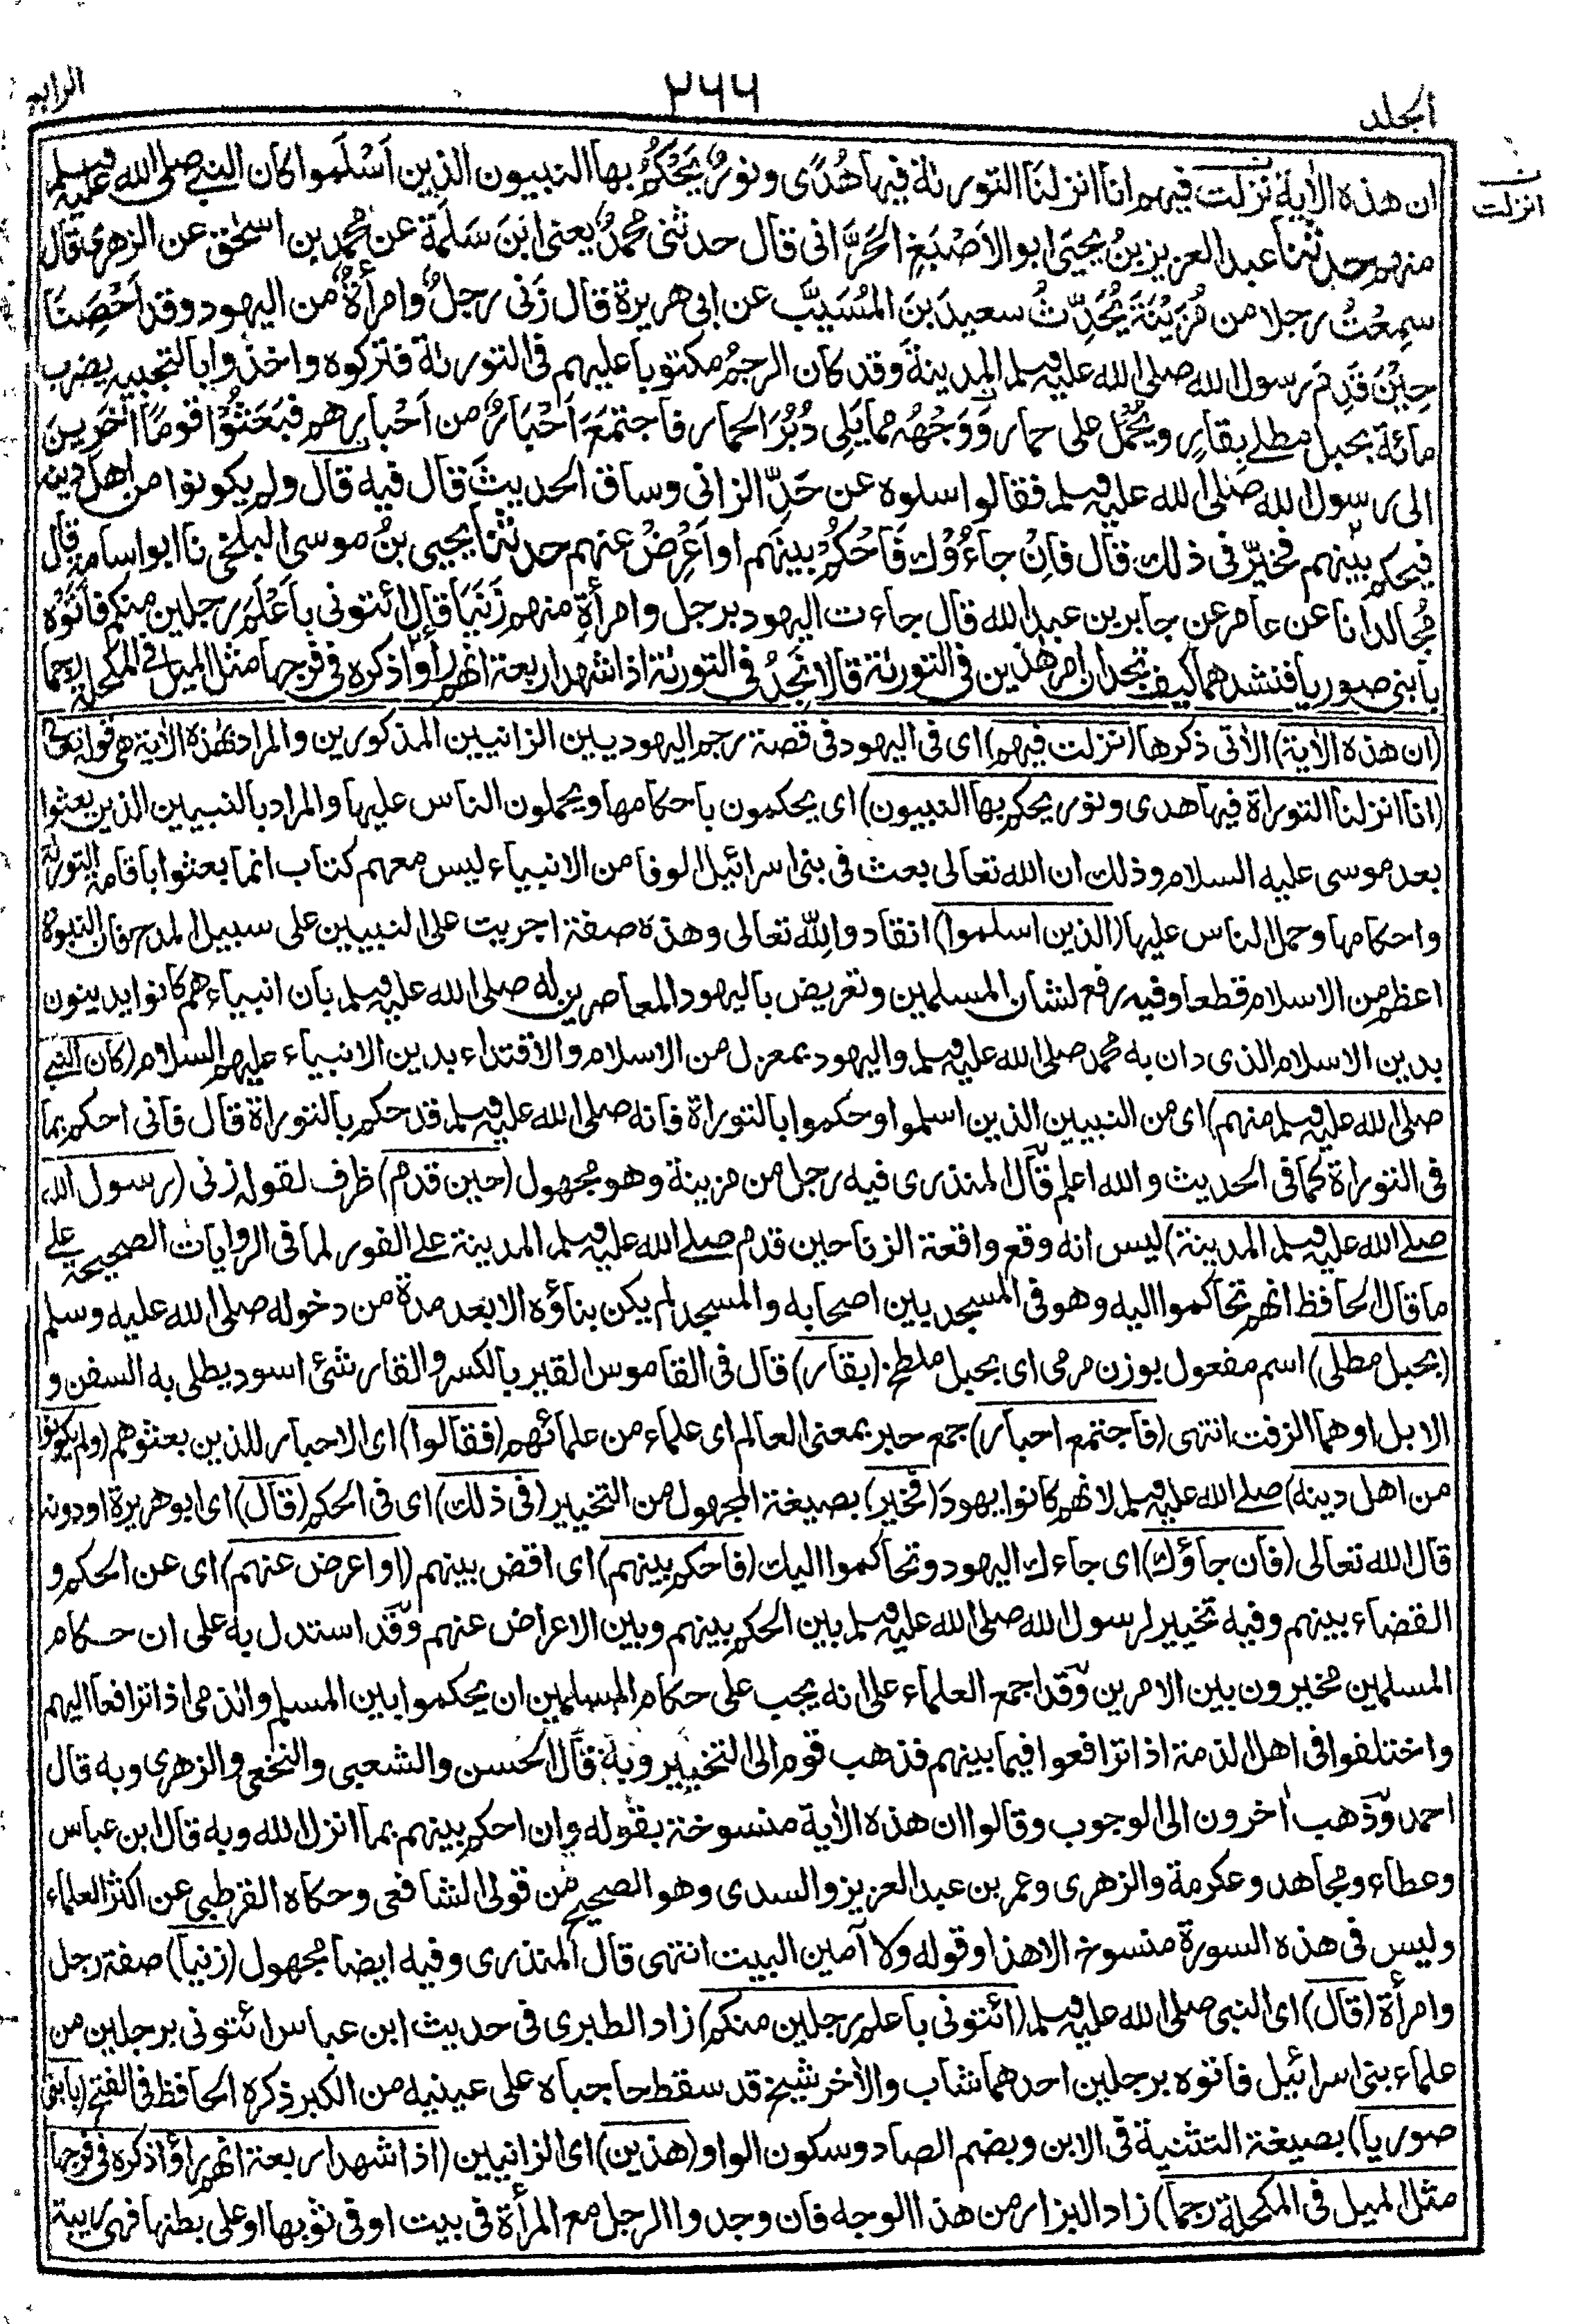 الرابع
٢٦٦
الجلد
انزلت
ان هذه الآية نزلت فيهم انا انزلنا التورىة فيها هُدًى ونورٌ يَحْكُمُ بها النبيون الذين اَسْلَموا كان النبي صلى الله عليه وسلم
منهم حدثنا عبد العزيز بنُ يحيَى ابو الاَصْبَغِ الحَرَّانى قال حدثنى محمدٌ يعنى ابنَ سَلَمَةَ عن محمد بن اسحٰق عن الزهرى قال
سمِعْتُ رجلا من مُزَيْنَةَ يُحَدِّثُ سعيدَ بنَ المُسَيَّب عن ابى هريرة قال زَنى رجلٌ وامرأةٌ من اليهود وقد اُحْصِنَا
حِيْنَ قَدِمَ رسول الله صلى الله عليه وسلم المدينةَ وقد كان الرجمُ مكتوبا عليهم فى التورىة فتركوه واخذوا بالتجبيه يضرب
مائة بحبل مطلى بِقارٍ ويُحْمَلُ على حمار وَوَجْهُه مما يَلِى دُبُرَ الحمار فاجتمَعَ اَحْبَارٌ من اَحْبارهم فبَعَثُوْا قومًا اٰخَرِينَ
الى رسول الله صلى الله عليه وسلم فقالوا سلوه عن حَدِّ الزانى وساق الحديثَ قال فيه قال ولم يكونوا من اهل دينه
فيحكم بينهم فخيّر فى ذلك قال فاِنْ جاءُوْك فَاحْكُمْ بينهم او اَعْرِضْ عنهم حدثنا يحيى بنُ موسى البلخى نا ابو اسامة قال
مُجالد انا عن عامر عن جابر بن عبد الله قال جاءت اليهود برجل وامرأةٍ منهم زَنَيَا قال ائتونى باَعْلَمِ رجلين منكم فاَتَوْه
بابنى صوريا فنشدهما كيف تجدان امر هٰذين فى التورىة قالا نَجِدُ فى التورىة اذا شهد اربعة انهم رأوا ذكره فى فرجها مثل الميل فى المكحلة رجما
(ان هذه الآية) الآتى ذكرها (نزلت فيهم) اى فى اليهود فى قصة رجم اليهوديين الزانيين المذكورين والمراد بهذه الآية هى قوله تعالى
(انا انزلنا التوراة فيها هدى ونور يحكم بها النبيون) اى يحكمون باحكامها ويحملون الناس عليها والمراد بالنبيين الذين بعثوا
بعد موسى عليه السلام وذلك ان الله تعالى بعث فى بنى اسرائيل الوفا من الانبياء ليس معهم كتاب انما بعثوا باقامة التورىة
واحكامها وحمل الناس عليها (الذين اسلموا) انقادوا لله تعالى وهذه صفة اجريت على النبيين على سبيل المدح فان النبوة
اعظم من الاسلام قطعا وفيه رفع لشان المسلمين وتعريض باليهود المعاصرين له صلى الله عليه وسلم بان انبياءهم كانوا يدينون
بدين الاسلام الذى دان به محمد صلى الله عليه وسلم واليهود بمعزل من الاسلام والاقتداء بدين الانبياء عليهم السلام (كان النبى
صلى الله عليه وسلم منهم) اى من النبيين الذين اسلموا وحكموا بالتوراة فانه صلى الله عليه وسلم قد حكم بالتوراة قال فانى احكم بما
فى التوراة كما فى الحديث والله اعلم قال المنذرى فيه رجل من مزينة وهو مجهول (حين قدم) ظرف لقوله زنى (رسول الله
صلى الله عليه وسلم المدينة) ليس انه وقع واقعة الزنا حين قدم صلى الله عليه وسلم المدينة على الفور لما فى الروايات الصحيحة على
ما قال الحافظ انهم تحاكموا اليه وهو فى المسجد بين اصحابه والمسجد لم يكن بناؤه الا بعد مدة من دخوله صلى الله عليه وسلم
(بحبل مطلى) اسم مفعول بوزن مرمى اى بحبل ملطخ (بقار) قال فى القاموس القير بالكسر والقار شئ اسود يطلى به السفن و
الابل او هما الزفت انتهى (فاجتمع احبار) جمع حبر بمعنى العالم اى علماء من علمائهم (فقالوا) اى الاحبار للذين بعثوهم (ولم يكونوا
من اهل دينه) صلى الله عليه وسلم لانهم كانوا يهود (فخير) بصيغة المجهول من التخيير (فى ذلك) اى فى الحكم (قال) اى ابو هريرة او دونه
قال الله تعالى (فان جاؤك) اى جاءك اليهود وتحاكموا اليك (فاحكم بينهم) اى اقض بينهم (او اعرض عنهم) اى عن الحكم و
القضاء بينهم وفيه تخيير لرسول الله صلى الله عليه وسلم بين الحكم بينهم وبين الاعراض عنهم وقد استدل به على ان حكام
المسلمين مخيرون بين الامرين وقد اجمع العلماء على انه يجب على حكام المسلمين ان يحكموا بين المسلم والذمى اذا ترافعا اليهم
واختلفوا فى اهل الذمة اذا ترافعوا فيما بينهم فذهب قوم الى التخيير وبه قال الحسن والشعبى والنخعى والزهرى وبه قال
احمد وذهب اٰخرون الى الوجوب وقالوا ان هذه الآية منسوخة بقوله وان احكم بينهم بما انزل الله وبه قال ابن عباس
وعطاء ومجاهد وعكرمة والزهرى وعمر بن عبد العزيز والسدى وهو الصحيح من قولى الشافعى وحكاه القرطبى عن اكثر العلماء
وليس فى هذه السورة منسوخ الا هذا وقوله ولا آمين البيت انتهى قال المنذرى وفيه ايضا مجهول (زنيا) صفة رجل
وامرأة (قال) اى النبى صلى الله عليه وسلم (ائتونى باعلم رجلين منكم) زاد الطبرى فى حديث ابن عباس ائتونى برجلين من
علماء بنى اسرائيل فاتوه برجلين احدهما شاب والآخر شيخ قد سقط حاجباه على عينيه من الكبر ذكره الحافظ فى الفتح (بابنى
صوريا) بصيغة التثنية فى الابن وبضم الصاد وسكون الواو (هذين) اى الزانيين (اذا شهد اربعة انهم رأوا ذكره فى فرجها
مثل الميل فى المكحلة رجما) زاد البزار من هذا الوجه فان وجدوا الرجل مع المرأة فى بيت او فى ثوبها او على بطنها فهى ريبة